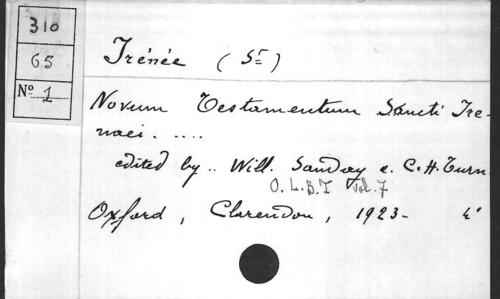 310
65
Nº 1
Irénée (St)
Novum Testamentum Sancti Ire-
naei. ....
edited by .. Will. Sanday e. C.H. Turn
O. L. B. T Vol. 7
Oxford, Clarendon, 1923- 4°